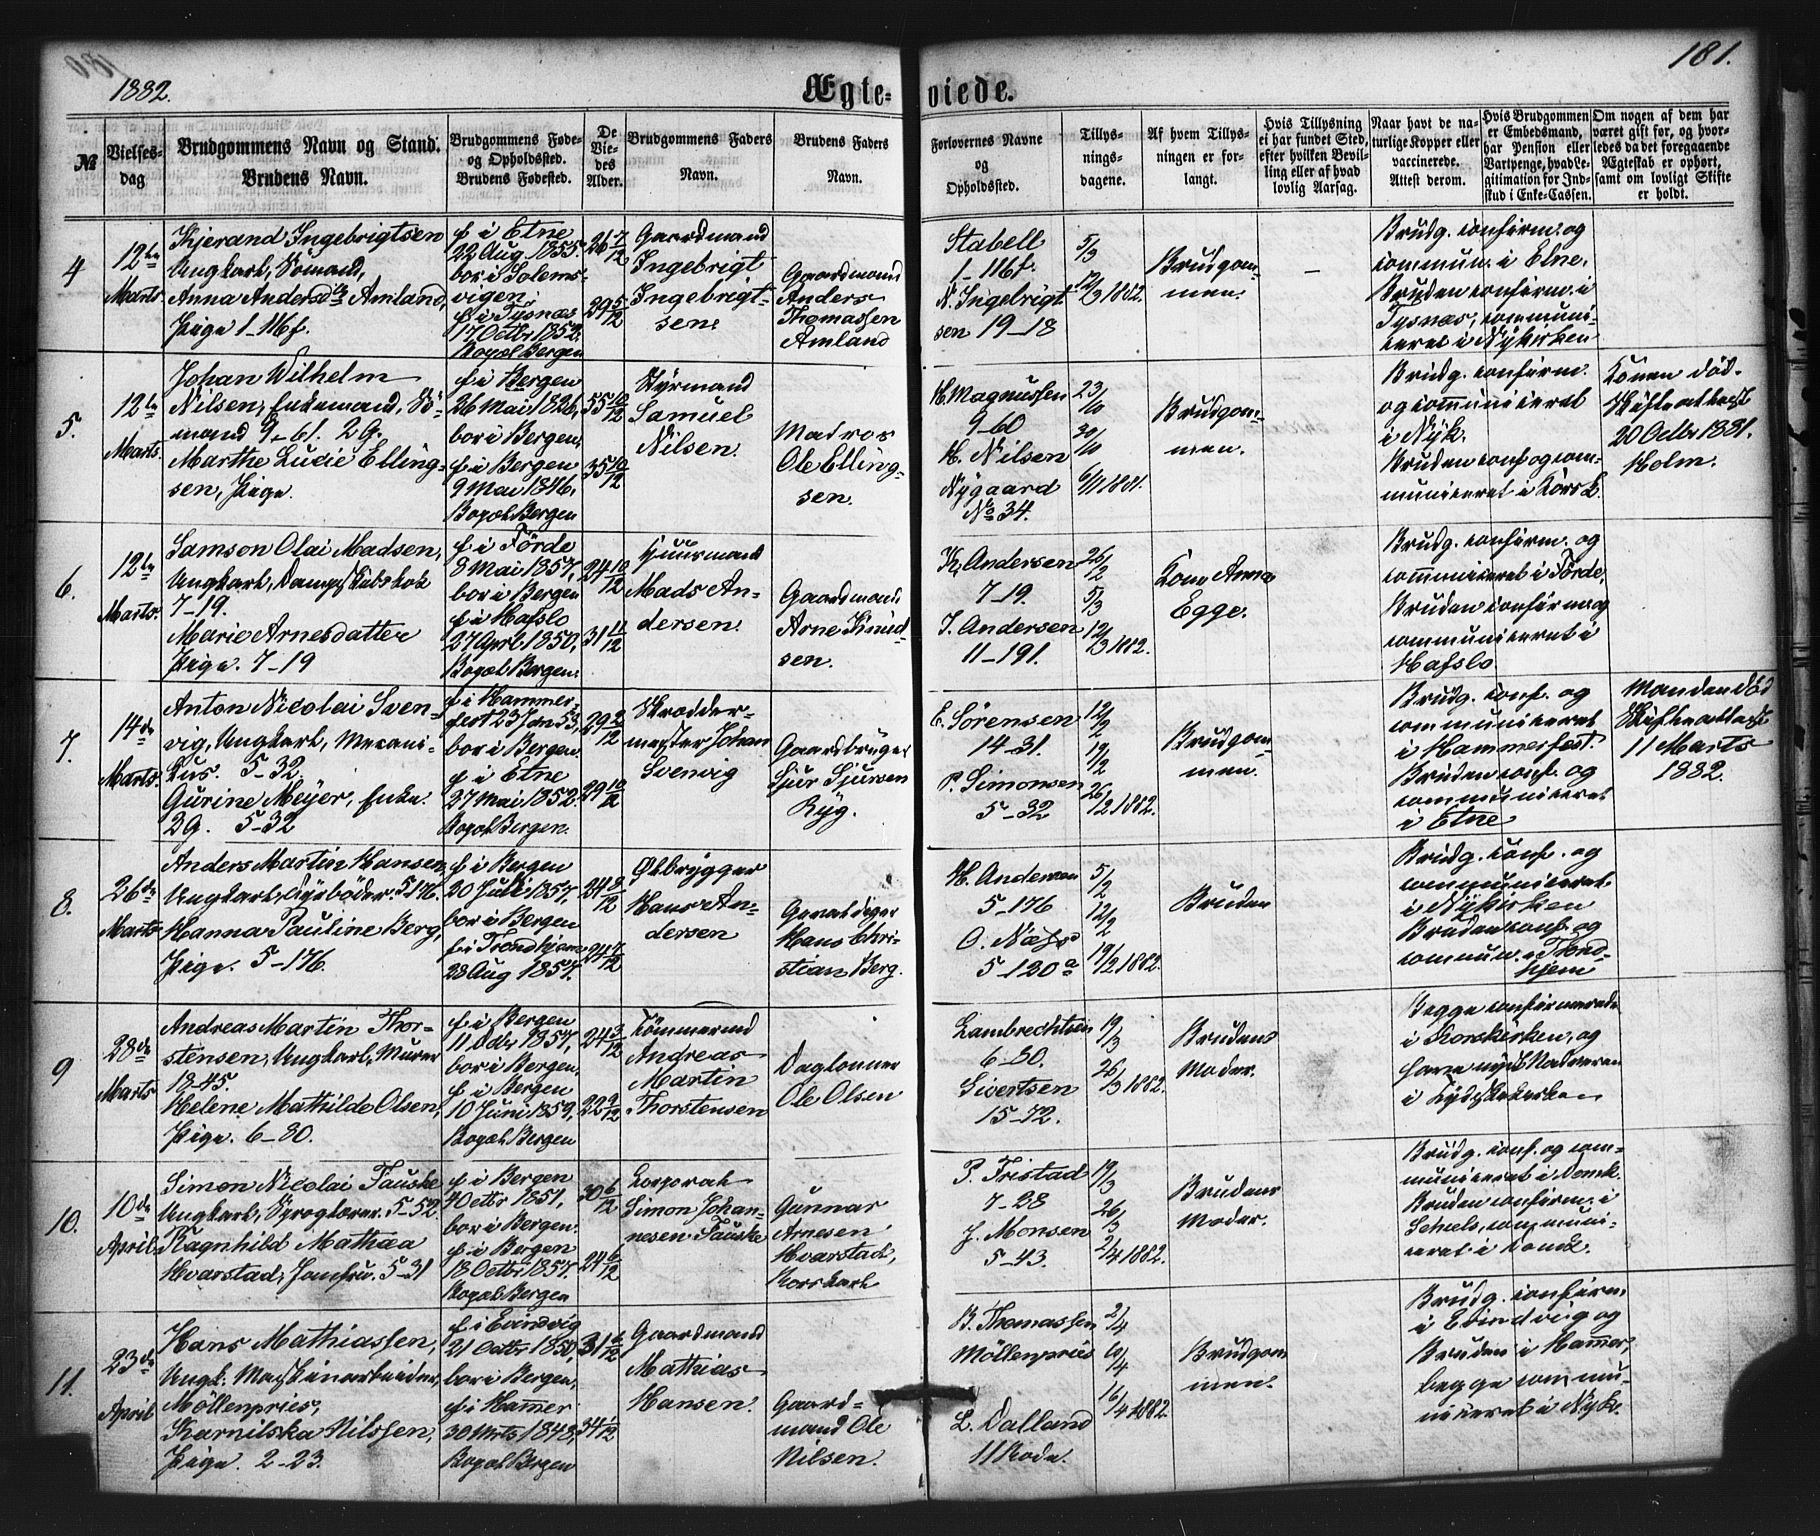 1882.
Ægte-
viede.
181.
№
Vielses-
dag
Brudgommens Navn og Stand.
Brudens Navn.
Brudgommens Føde-
og Opholdssted.
Brudens Fødested.
De
Vie-
des
Alder.
Brudgommens Faders
Navn.
Brudens Faders
Navn.
Forlovernes Navne
og
Opholdssted.
Tillys-
nings-
dagene.
Af hvem Tillys-
ningen er for-
langt.
Hvis Tillysning
ei har fundet Sted,
efter hvilken Bevil-
ling eller af hvad
lovlig Aarsag.
Naar havt de na-
turlige Kopper eller
vaccinerede.
Attest derom.
Hvis Brudgommen
er Embedsmand,
har Pension eller
Vartpenge, hvad Le-
gitimation for Ind-
skud i Enke-Cassen.
Om nogen af dem har
været gift før, og hvor-
ledes da det foregaaende
Ægteskab er ophørt,
samt om lovligt Skifte
er holdt.
4
12te
Marts.
Kjerand Ingebrigtsen
Ungkarl, Sömand,
Anna Andersd. Amland,
Pige 1-116f.
f i Etne
22 Aug. 1855.
bor i Solems-
vigen
f i Tysnæs
17 Octbr 1852.
Bopæl Bergen
26 7/12
29 5/12
Gaardmand
Ingebrigt
Ingebrigt-
sen.
Gaardmand
Anders
Thomassen
Amland
Stabell
1-116f.
N. Ingebrigt
sen 19-18
5/3
12/3 1882.
Brudgom-
men.
–
Brudg. confirm. og
commun. i Etne.
Bruden confirm. i
Tysnæs, communi-
ceret i Nykirken
5.
12te
Marts.
Johan Wilhelm
Nilsen, Enkemand, Sö-
mand 9-61. 2 G.
Marthe Lucie Elling-
sen, Pige.
f i Bergen
26 Mai 1826,
bor i Bergen,
f i Bergen
9 Mai 1846,
Bopæl Bergen
55 10/12
35 10/12
Styrmand
Samuel
Nilsen.
Matros
Ole Elling-
sen.
H. Magnussen
9-60
H. Nilsen
Nygaard
No 34.
23/10
30/10
6/11 1881.
Brudgom-
men.
Brudg. confirm.
og communiceret
i Nyk.
Bruden conf og com-
municeret i Korsk.
Konen død.
Skifteattest
20 Octbr 1881.
Holm.
6.
12te
Marts.
Samson Olai Madsen,
Ungkarl, Dampskibskok
7-19.
Marie Arnesdatter
Pige. 7-19
f i Förde
8 Mai 1857,
bor i Bergen
f i Hafslo
27 Apr. 1850,
Bopæl Bergen.
24 10/12
31 11/12
Huusmand
Mads An-
dersen.
Gaardmand
Arne Knud-
sen.
K. Andersen
7-19.
I. Andersen
11-191.
26/2
5/3
12/3 1882.
Kone Anna
Egge.
Brudg. confirm. og
communiceret i Förde,
Bruden confirm. og
communiceret i
Hafslo
7.
14de
Marts.
Anton Nicolai Sven-
vig, Ungkarl, Mecani-
kus. 5-32
Gurine Meyer, Enke.
2 G. 5-32
f i Hammer-
fest 23 Jan 53,
bor i Bergen.
f i Etne
27 Mai 1852.
Bopæl Bergen.
29 2/12
29 10/12
Skrædder-
mester Johan
Svenvig
Gaardbruger
Sjur Sjursen
Ryg.
E. Sørensen
14-31.
P. Simonsen
5-32
12/2
19/2
26/2 1882.
Brudgom-
men.
Brudg. conf. og
communiceret
i Hammerfest.
Bruden conf. og
communiceret
i Etne
Manden død
Skifteattest
11 Marts
1882.
8.
26de
Marts
Anders Martin Hansen,
Ungkarl, Fyrbøder. 5-176.
Hanna Pauline Berg,
Pige. 5-176.
f i Bergen
20 Juli 1857,
bor i Bergen
f i Trondhjem
28 Aug 1857.
24 8/12
24 7/12
Ølbrygger
Hans An-
dersen
Gevaldiger
Hans Chri-
stian Berg.
H. Andersen
5-176
O. Næss
5-120a
5/2
12/2
19/2 1882.
Bruden
Brudg. conf. og
communiceret
i Nykirken
Bruden conf. og
commun. i Trond-
hjem
9
28de
Marts
Andreas Martin Thor-
stensen, Ungkarl, Murer
18-45.
Helene Mathilde Olsen,
Pige. 6-80.
f i Bergen
11 Dcbr 1857,
bor i Bergen,
f i Bergen
10 Juni 1859,
Bopæl Bergen
24 3/12
22 9/12
Tömmermd
Andreas
Martin
Thorstensen
Daglönner
Ole Olsen
Lambrechtsen
6-80.
Sivertsen
15-72.
19/3
26/3 1882.
Brudens
Moder.
Begge confirmerede
i Korskirken, og
have nydt Nadveren
i Tydskekirken
10.
10de
April
Simon Nicolai Fauske
Ungkarl, Sproglærer. 5-52.
Ragnhild Mathea
Hvarstad, Jomfru. 5-31
f i Bergen
4 Octbr 1851,
bor i Bergen.
f i Bergen
18 Octbr 1857.
Bopæl Bergen
30 6/12
24 6/12
Corporal
Simon Johan-
nesen Fauske
Gunnar
Arnesen
Hvarstad,
Korskarl
P. Tristad
7-28
J. Monsen
5-43.
19/3
26/3
2/4 1882.
Brudens
Moder.
Brudg. conf. og com-
municeret i Domk.
Bruden confirm. i
communi-
ceret i Domk.
11.
23de
April
Hans Mathiassen,
Ungk. Maskinarbeider,
Möllenpries,
Karnilska Nilssen,
Pige. 2-23.
f i Evindvig
21 Octbr 1850,
bor i Bergen,
f i Hamer
30 Mrts 1848,
Bopæl Bergen
31 6/12
34 1/12
Gaardmand
Mathias
Hansen.
Gaard-
mand Ole
Nilsen.
B. Thomassen
Möllenpries
L. Dalland
11 Rode.
2/4
10/4
16/4 1882.
Brudgom
men.
Brudg. confirm.
i Evindvig og
Bruden i Hamer,
begge commu-
niceret i Nyk.